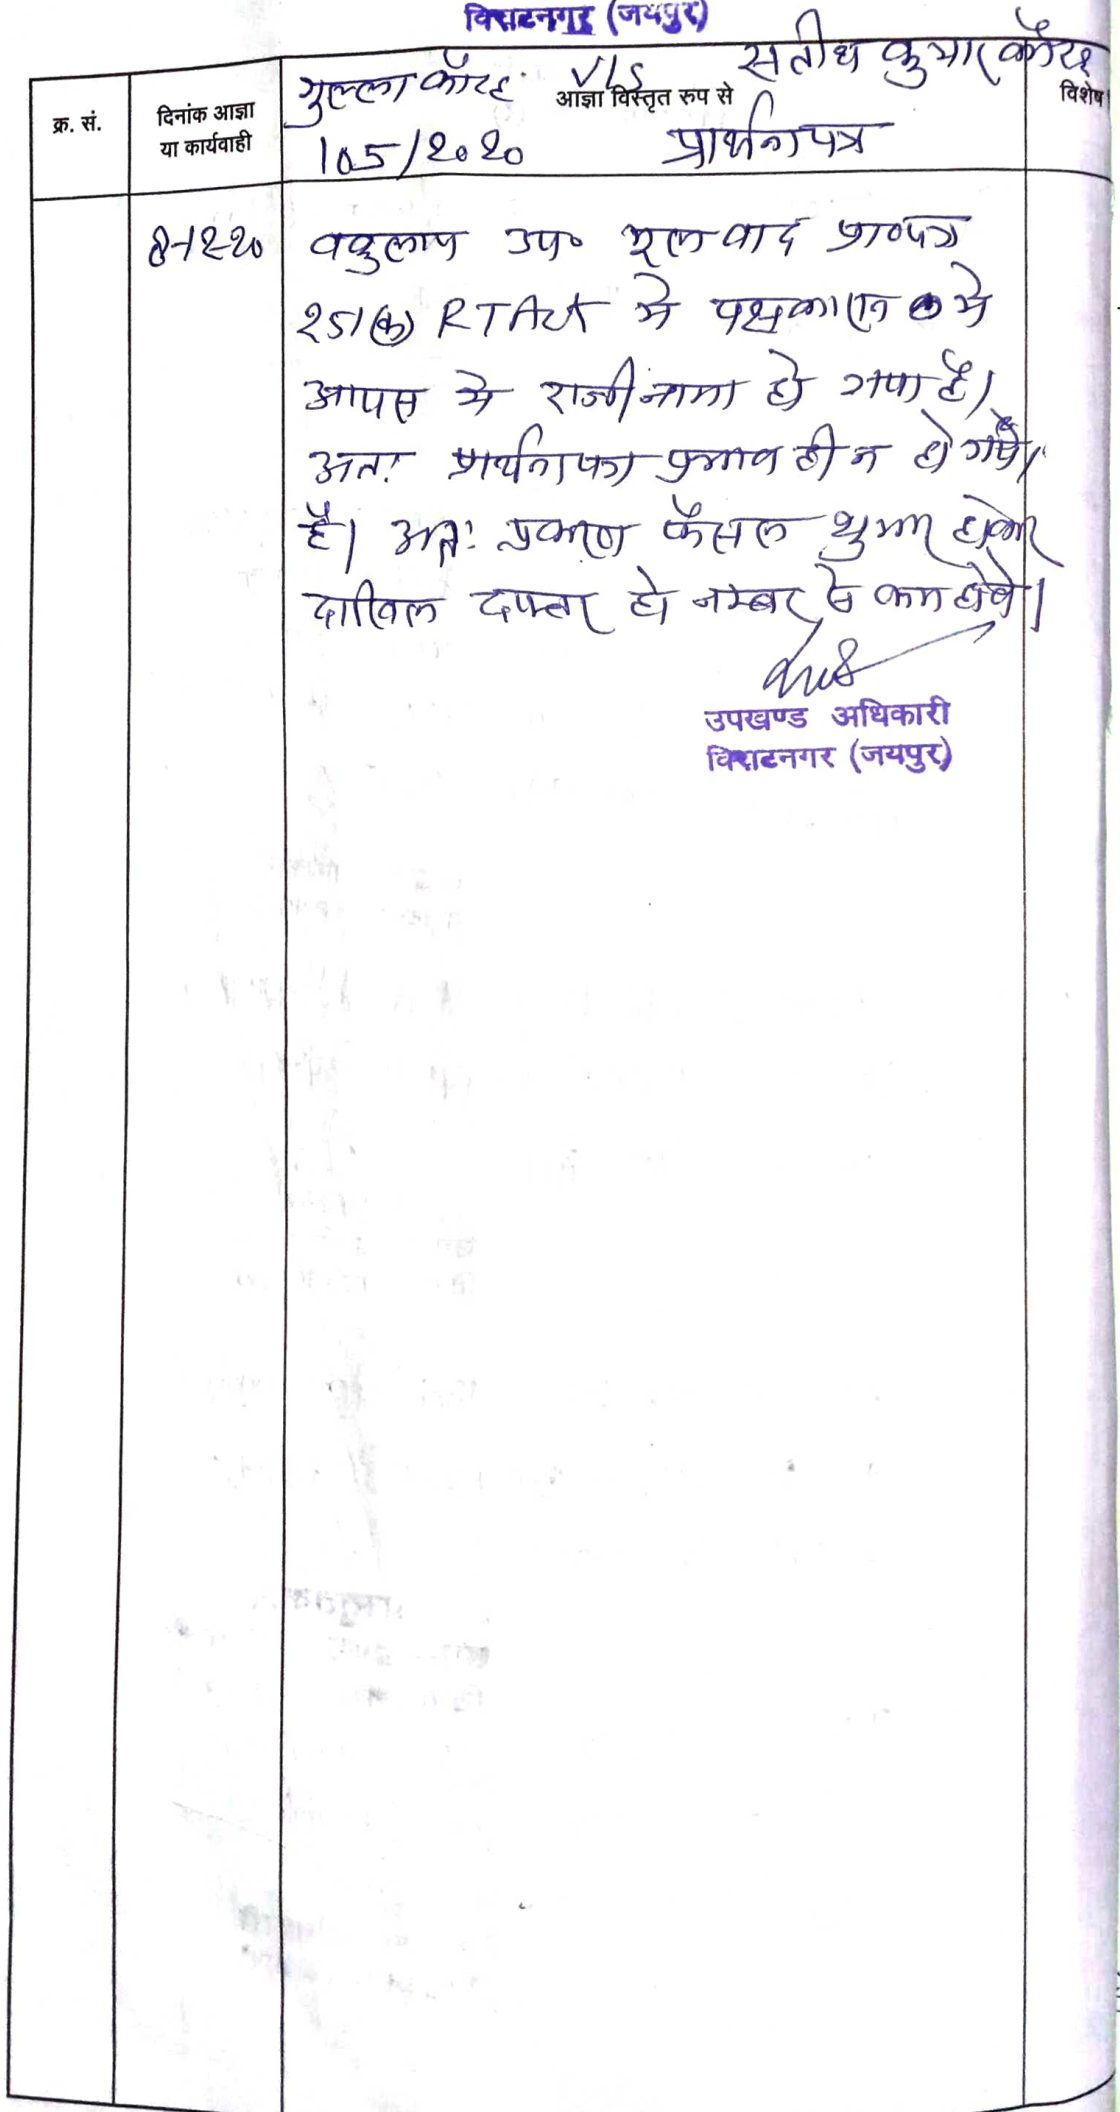 विराटनगर (जयपुर)
गुल्ला कौरह V/S सतीश कुमार कौरह
क्र. सं.
दिनांक आज्ञा
या कार्यवाही
आज्ञा विस्तृत रुप से
विशेष
105/2020 प्रार्थनापत्र
8-12-20 वकुलाप उप० मूल वाद प्रा०पत्र
251(क) RTAct मे पक्षकारान मे
आपस मे राजीनामा हो गया है।
अतः प्रार्थनापत्र प्रभावहीन हो गया
है। अतः प्रकरण फैसल शुमार होकर
दाखिल दफ्तर हो नम्बर से कम होवे।
उपखण्ड अधिकारी
विराटनगर (जयपुर)